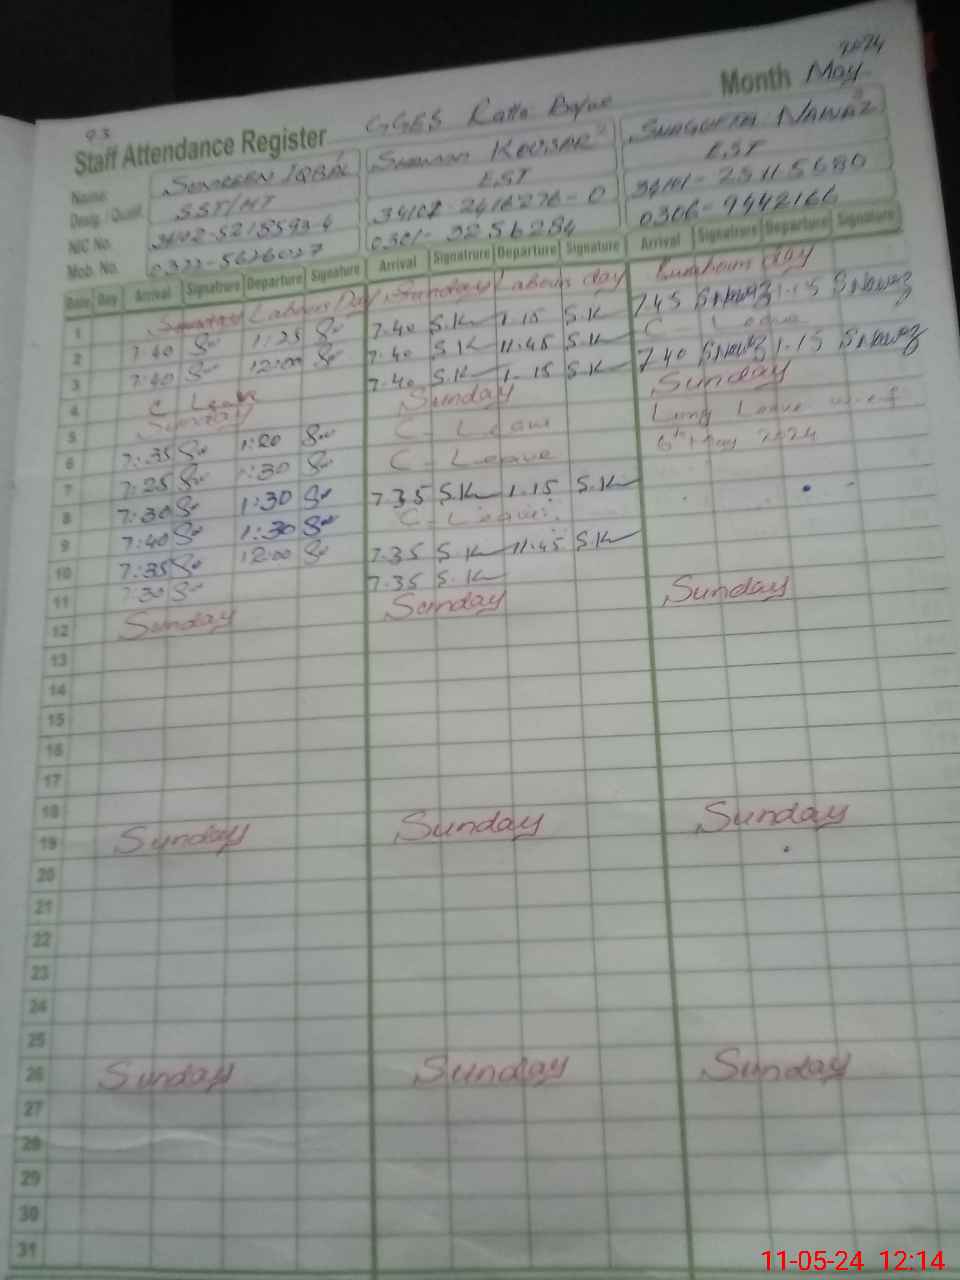 2024
93
GGES Ratta Bajwa
Month May
Staff Attendance Register
Name
Samreen IQBAL
KOUSAR
SHAGUFTA NAWAZ
Desig. / Qualif.
SST/HT
EST
EST
NIC No.
Mob. No.
0322-5626027
0301-
0306-9442166
Date Day Arrival Signature Departure Signature Arrival Signature Departure Signature Arrival Signature Departure Signature
1 Labour Day Labour day day
2 7:40 1:25 7.40 S.K 1.15 S.K 7.45 S.Nawaz 1.15 S.Nawaz
3 7:40 12:00 7.40 S.K 11.45 S.K C Leave
4 C Leave 7.40 S.K 1.15 S.K 7.40 S.Nawaz 1.15 S.Nawaz
5 Sunday Sunday Sunday
6 7:35 1:20 C - Leave Long Leave w.e.f
7 7:25 1:30 C - Leave 6th May 2024
8 7:30 1:30 7.35 S.K 1.15 S.K
9 7:40 1:30 C - Leave
10 7:35 12:00 7.35 S.K 11.45 S.K
11 7:30 7.35 S.K
12 Sunday Sunday Sunday
13
14
15
16
17
18
19 Sunday Sunday Sunday
20
21
22
23
24
25
26 Sunday Sunday Sunday
27
28
29
30
31
11-05-24 12:14